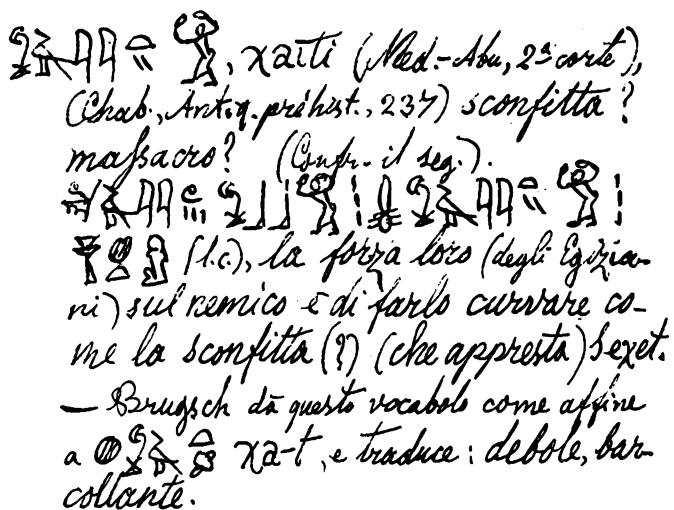 , χaiti (Med.-Abu, 2ª corte),
(Chab., Antiq. préhist., 237) sconfitta?
massacro? (Confr. il seg.).
(l.c.), la forza loro (degli Egizia-
ni) sul nemico è di farlo curvare co-
me la sconfitta (?) (che appresta) Seχet.
— Brugsch dà questo vocabolo come affine
a χa-t, e traduce: debole, bar-
collante.